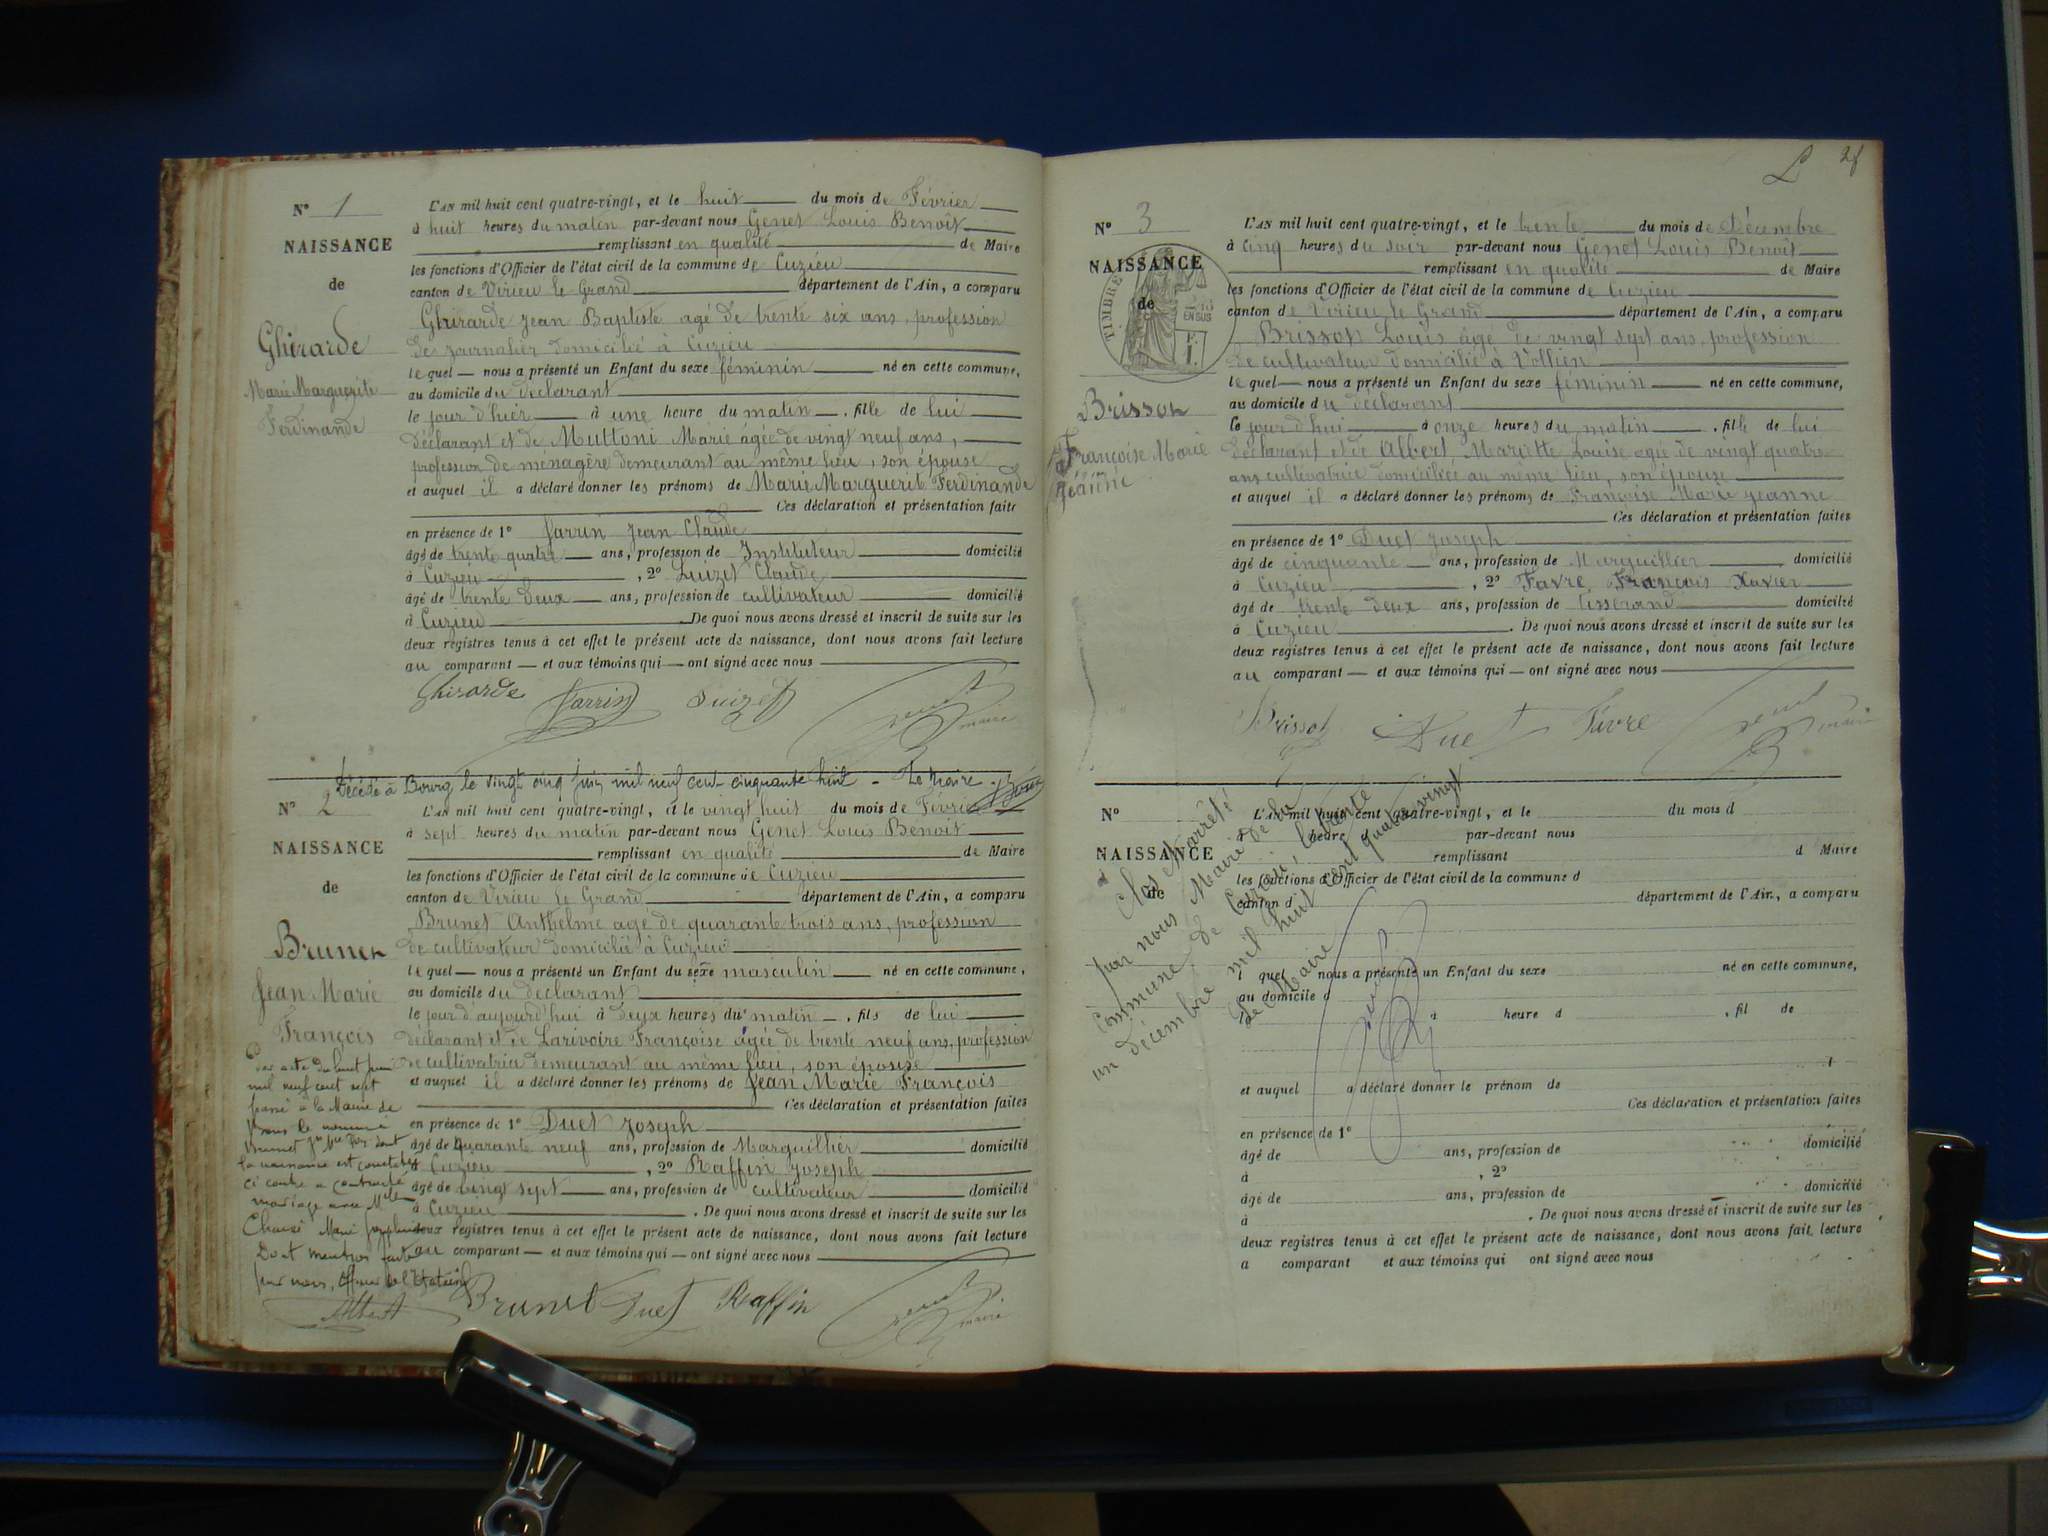 N° 1
NAISSANCE
de
Ghirarde
Marie Marguerite
Ferdinande
L'AN mil huit cent quatre-vingt, et le huit du mois de Février
à huit heures du matin par-devant nous Genet Louis Benoit
remplissant en qualité de Maire
les fonctions d'Officier de l'état civil de la commune de Cuzieu
canton de Virieu le Grand département de l'Ain, a comparu
Ghirarde Jean Baptiste agé de trente six ans, profession
de journalier domicilié à Cuzieu
lequel nous a présenté un Enfant du sexe féminin né en cette commune,
au domicile du déclarant
le jour d'hier à une heure du matin, fille de lui
déclarant et de Muttoni Marie âgée de vingt neuf ans,
profession de ménagère demeurant au même lieu, son épouse
et auquel il a déclaré donner les prénoms de Marie Marguerite Ferdinande
Ces déclaration et présentation faites
en présence de 1° Jarrin Jean Claude
âgé de trente quatre ans, profession de Instituteur domicilié
à Cuzieu, 2° Luizet Claude
âgé de trente deux ans, profession de cultivateur domicilié
à Cuzieu. De quoi nous avons dressé et inscrit de suite sur les
deux registres tenus à cet effet le présent acte de naissance, dont nous avons fait lecture
au comparant et aux témoins qui ont signé avec nous
Ghirarde Jarrin Luizet Genet maire
Décédé à Bourg le vingt cinq juin mil neuf cent cinquante huit - Le Maire
N° 2
NAISSANCE
de
Brunet
Jean Marie
François
Par acte du huit juin
mil neuf cent sept
passé à la Mairie de
le nommé
Brunet Jn Mie Fois dont
la naissance est constatée
ci contre a contracté
mariage avec Mlle
Marie Joséphine
Dont mention faite
par nous, Officier de l'Etat civil
Albert
L'AN mil huit cent quatre-vingt, et le vingt huit du mois de Février
à sept heures du matin par-devant nous Genet Louis Benoit
remplissant en qualité de Maire
les fonctions d'Officier de l'état civil de la commune de Cuzieu
canton de Virieu le Grand département de l'Ain, a comparu
Brunet Anthelme agé de quarante trois ans, profession
de cultivateur domicilié à Cuzieu
lequel nous a présenté un Enfant du sexe masculin né en cette commune,
au domicile du déclarant
le jour d'aujourd'hui à deux heures du matin, fils de lui
déclarant et de Larivoire Françoise âgée de trente neuf ans, profession
de cultivatrice demeurant au même lieu, son épouse
et auquel il a déclaré donner les prénoms de Jean Marie François
Ces déclaration et présentation faites
en présence de 1° Duet Joseph
âgé de quarante neuf ans, profession de Marguillier domicilié
à Cuzieu, 2° Raffin Joseph
âgé de vingt sept ans, profession de cultivateur domicilié
à Cuzieu. De quoi nous avons dressé et inscrit de suite sur les
deux registres tenus à cet effet le présent acte de naissance, dont nous avons fait lecture
au comparant et aux témoins qui ont signé avec nous
Brunet Duet Raffin Genet maire
N° 3
NAISSANCE
de
TIMBRE
EN SUS
F.
1.
Brisson
Françoise Marie
Jeanne
L'AN mil huit cent quatre-vingt, et le trente du mois de Décembre
à cinq heures du soir par-devant nous Genet Louis Benoit
remplissant en qualité de Maire
les fonctions d'Officier de l'état civil de la commune de Cuzieu
canton de Virieu le Grand département de l'Ain, a comparu
Brisson Louis âgé de vingt sept ans, profession
de cultivateur domicilié à Vollien
lequel nous a présenté un Enfant du sexe féminin né en cette commune,
au domicile du déclarant
le jour d'hui à onze heures du matin, fille de lui
déclarant et de Albert Mariette Louise agée de vingt quatre
ans cultivatrice domiciliée au même lieu, son épouse
et auquel il a déclaré donner les prénoms de Françoise Marie Jeanne
Ces déclaration et présentation faites
en présence de 1° Duet Joseph
âgé de cinquante ans, profession de Marguillier domicilié
à Cuzieu, 2° Favre François Xavier
âgé de trente deux ans, profession de tisserand domicilié
à Cuzieu. De quoi nous avons dressé et inscrit de suite sur les
deux registres tenus à cet effet le présent acte de naissance, dont nous avons fait lecture
au comparant et aux témoins qui ont signé avec nous
Brisson Duet Favre Genet maire
N°
NAISSANCE
de
Clos et arrêté
par nous Maire de la
commune de Cuzieu, le trente
un décembre mil huit cent quatre vingt
Le Maire
Genet
L'AN mil huit cent quatre-vingt, et le du mois d
heure par-devant nous
remplissant d Maire
les fonctions d'Officier de l'état civil de la commune d
canton d département de l'Ain, a comparu
l quel nous a présenté un Enfant du sexe né en cette commune,
au domicile d
à heure d , fil de
et auquel a déclaré donner le prénom de
Ces déclaration et présentation faites
en présence de 1°
âgé de ans, profession de domicilié
à , 2°
âgé de ans, profession de domicilié
à . De quoi nous avons dressé et inscrit de suite sur les
deux registres tenus à cet effet le présent acte de naissance, dont nous avons fait lecture
a comparant et aux témoins qui ont signé avec nous